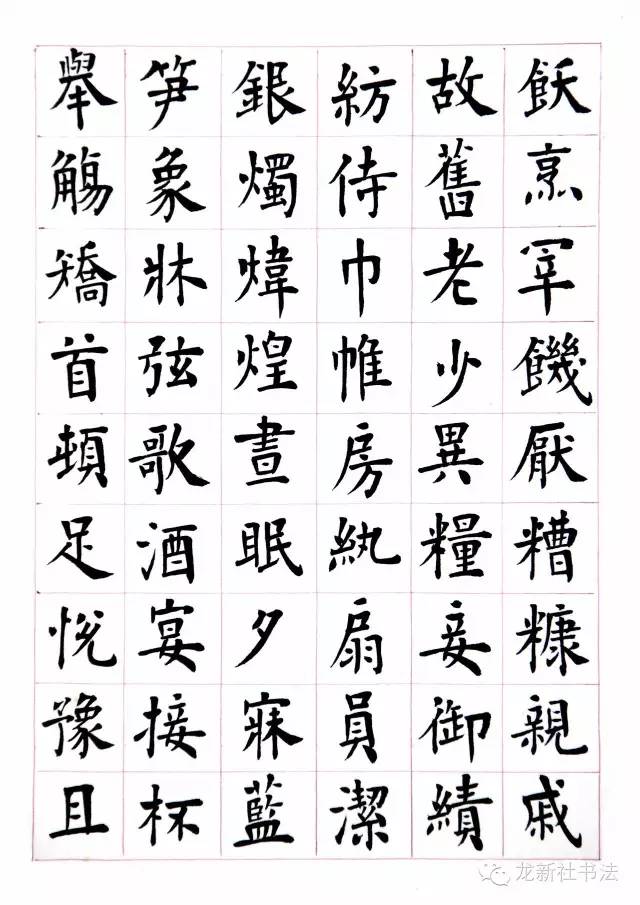 飫烹宰饑厭糟糠親戚
故舊老少異糧妾御績
紡侍巾帷房紈扇員潔
銀燭煒煌晝眠夕寐藍
笋象牀弦歌酒宴接杯
舉觴矯首頓足悅豫且
龙新社书法